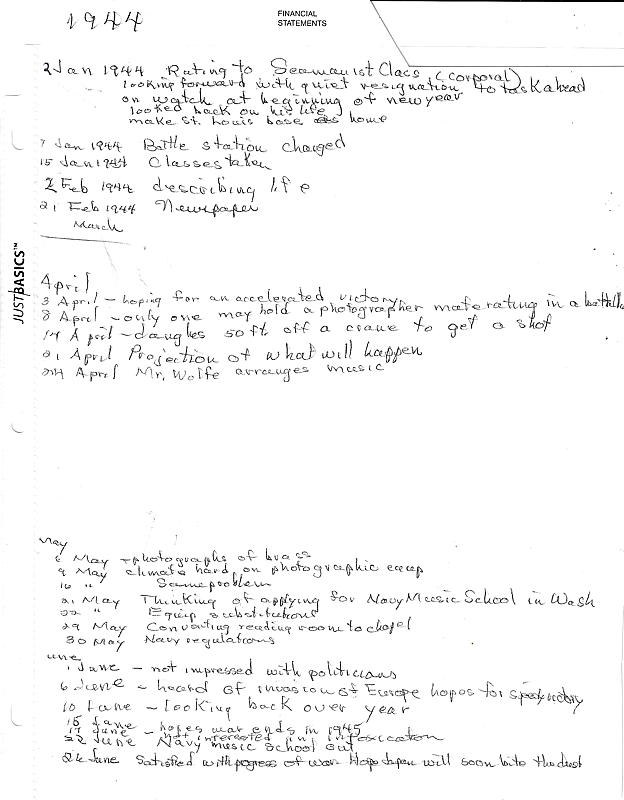 1944
FINANCIAL
STATEMENTS
2 Jan 1944 Rating to Seaman 1st Class (Corporal)
looking forward with quiet resignation to task ahead
on watch at beginning of new year
looked back on his life
make St. Louis base as home
7 Jan 1944 Battle station changed
15 Jan 1944 Classes taken
2 Feb 1944 describing life
21 Feb 1944 Newspaper
March
JUSTBASICS™
April
3 April - hoping for an accelerated victory
8 April - only one may hold a photographer mate rating in a
14 April - dangles 50 ft off a crane to get a shot
21 April Projection of what will happen
24 April Mr. Wolfe arranges music
May
6 May - photographs of brass
9 May climate hard on photographic equip
16 " Same problem
21 May Thinking of applying for Navy Music School in Wash
22 " Equip substitutions
29 May Converting reading room to chapel
30 May Navy regulations
une
1 June - not impressed with politicians
6 June - heard of invasion of Europe hopes for speedy victory
10 June - looking back over year
15 June - hopes war ends in 1945
17 June not interested in intoxication
22 June Navy music school out
26 June Satisfied with progess of war Hope Japan will soon bite the dust